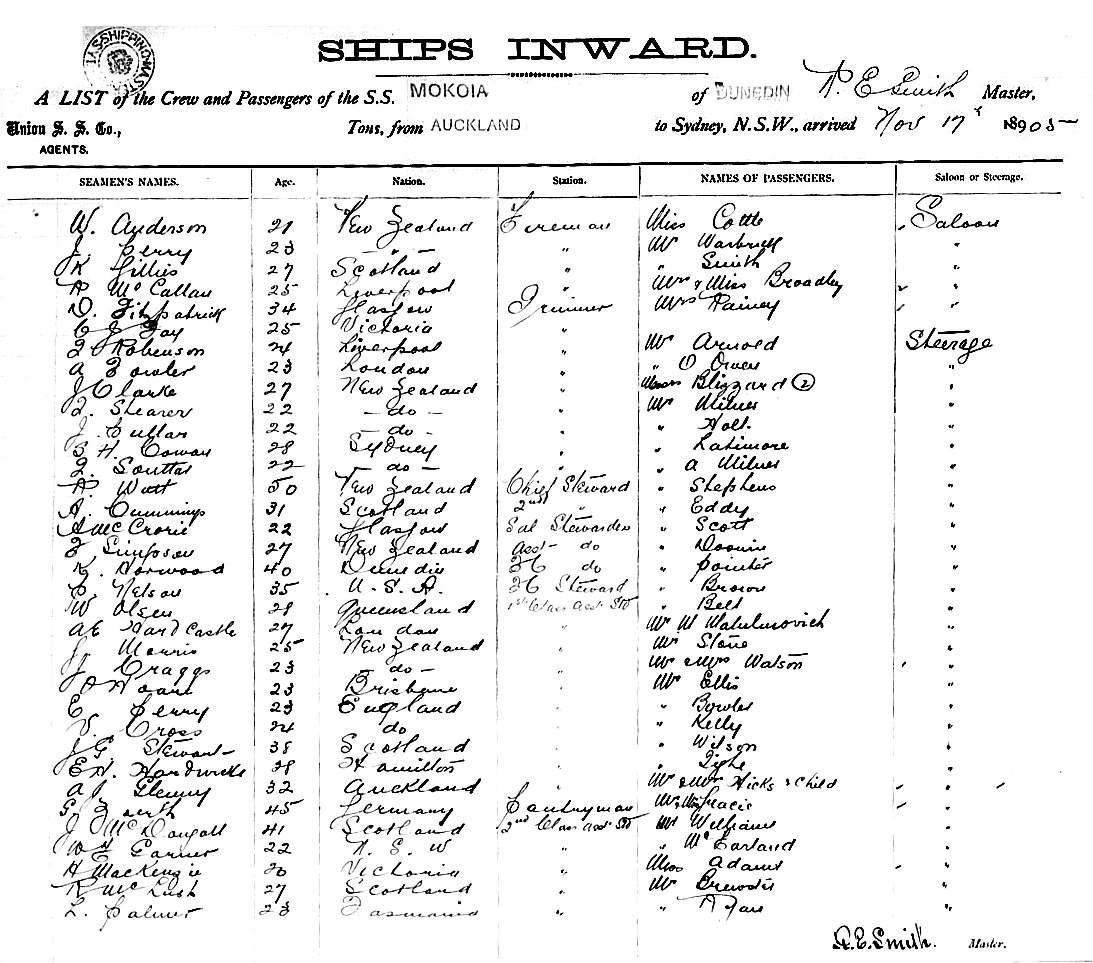 SHIPS INWARD.
A LIST of the Crew and Passengers of the S.S. MOKOIA of DUNEDIN E Smith Master,
Union S. S. Co., Tons, from AUCKLAND to Sydney, N.S.W., arrived Nov 17 1905
AGENTS.
SEAMEN'S NAMES. Age. Nation. Station. NAMES OF PASSENGERS. Saloon or Steerage.
W. Anderson 21 New Zealand Fireman Miss Cottle Saloon
J. Perry 23 - " - " Mr Warbrick "
K Gillies 27 Scotland " " Smith "
Mc Callan 25 Liverpool " Mrs & Miss Broadley "
D. Fitzpatrick 34 Glasgow Trimmer Mrs Rainey "
C J Fay 25 Victoria "
Robinson 24 Liverpool " Mr Arnold Steerage
A Fowler 23 London " " O Owen "
J Clarke 27 New Zealand " Messrs Blizzard (2) "
Shearer 22 - do - " Mr Milner "
J. Cullar 22 - do - " " Holt. "
S. H. Cowan 28 Sydney " " Latimore "
Souttar 22 - do - " " A Milner "
Watt 50 New Zealand Chief Steward " Stephens "
A. Cummings 31 Scotland 2nd " " Eddy "
A McCrorie 22 Glasgow Sal Stewardess " Scott "
Simpson 27 New Zealand Asst- do " "
K. Norwood 40 Dunedin do " Pointer "
Nelson 35 U. S. A. Steward " Brown "
W Olsen 28 Queensland 1st Class Asst Std " Belt "
A E Hardcastle 27 London " Mr M "
J. Morris 25 New Zealand " Mr Stone "
J. Craggs 23 - do - " Mr & Mrs Watson "
Hoare 23 Brisbane " Mr Ellis "
E. Perry 23 England " " Bowles "
V. Cross 24 do " " Kelly "
J G Stewart 38 Scotland " " Wilson "
E H. Hardwicke 28 Hamilton " " Tighe "
A J. Glenny 32 Auckland " Mr & Mrs Hicks & Child "
G. 45 Germany Pantryman Gracie "
J McDougall 41 Scotland 2nd Class Asst Std Mr Williams "
Garner 22 N. S. W " " McFarland "
H MacKenzie 20 Victoria " Miss Adams "
R McLush 27 Scotland " Mr Brewster "
L. Palmer 23 Tasmania " " "
A.E. Smith. Master.